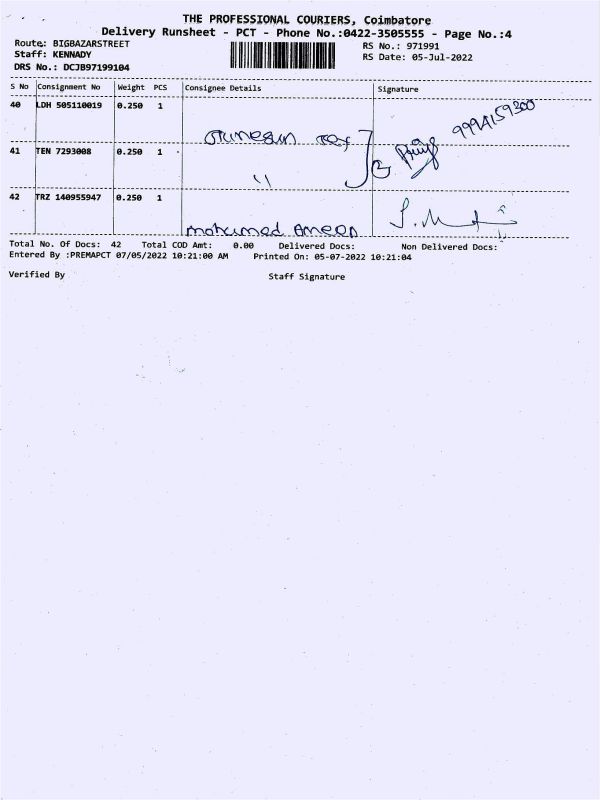 THE PROFESSIONAL COURIERS, Coimbatore
Delivery Runsheet - PCT - Phone No.:0422-3505555 - Page No.:4
Route: BIGBAZARSTREET
Staff: KENNADY
DRS No.: DCJB97199104
RS No.: 971991
RS Date: 05-Jul-2022
S No Consignment No Weight PCS Consignee Details Signature
40 LDH 505110019 0.250 1
9994159300
41 TEN 7293008 0.250 1
"
42 TRZ 140955947 0.250 1
mohamed Ameen
Total No. Of Docs: 42 Total COD Amt: 0.00 Delivered Docs: Non Delivered Docs:
Entered By :PREMAPCT 07/05/2022 10:21:00 AM Printed On: 05-07-2022 10:21:04
Verified By Staff Signature